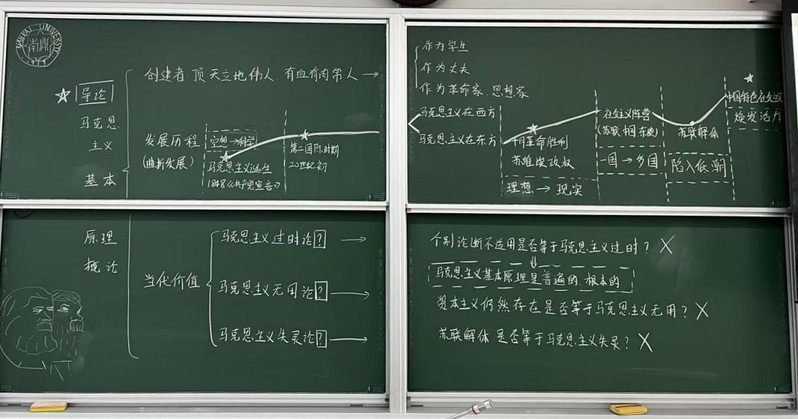 NANKAI UNIVERSITY
南開
导论
马克思
主义
基本
原理
概论
创建者 顶天立地伟人 有血有肉常人 →
作为学生
作为丈夫
作为革命家 思想家
发展历程
(曲折发展)
空想→科学
马克思主义诞生
1848《共产党宣言》
第二国际时期
20世纪初
马克思主义在西方
马克思主义在东方
十月革命胜利
苏维埃政权
理想 → 现实
社会主义阵营
(苏联 中国 东欧)
一国 → 多国
苏联解体
陷入低潮
中国特色社会主义
焕发活力
当代价值
马克思主义过时论? →
马克思主义无用论? →
马克思主义失灵论? →
个别论断不适用是否等于马克思主义过时? ×
马克思主义基本原理是普遍的、根本的
资本主义仍然存在是否等于马克思主义无用? ×
苏联解体是否等于马克思主义失灵? ×